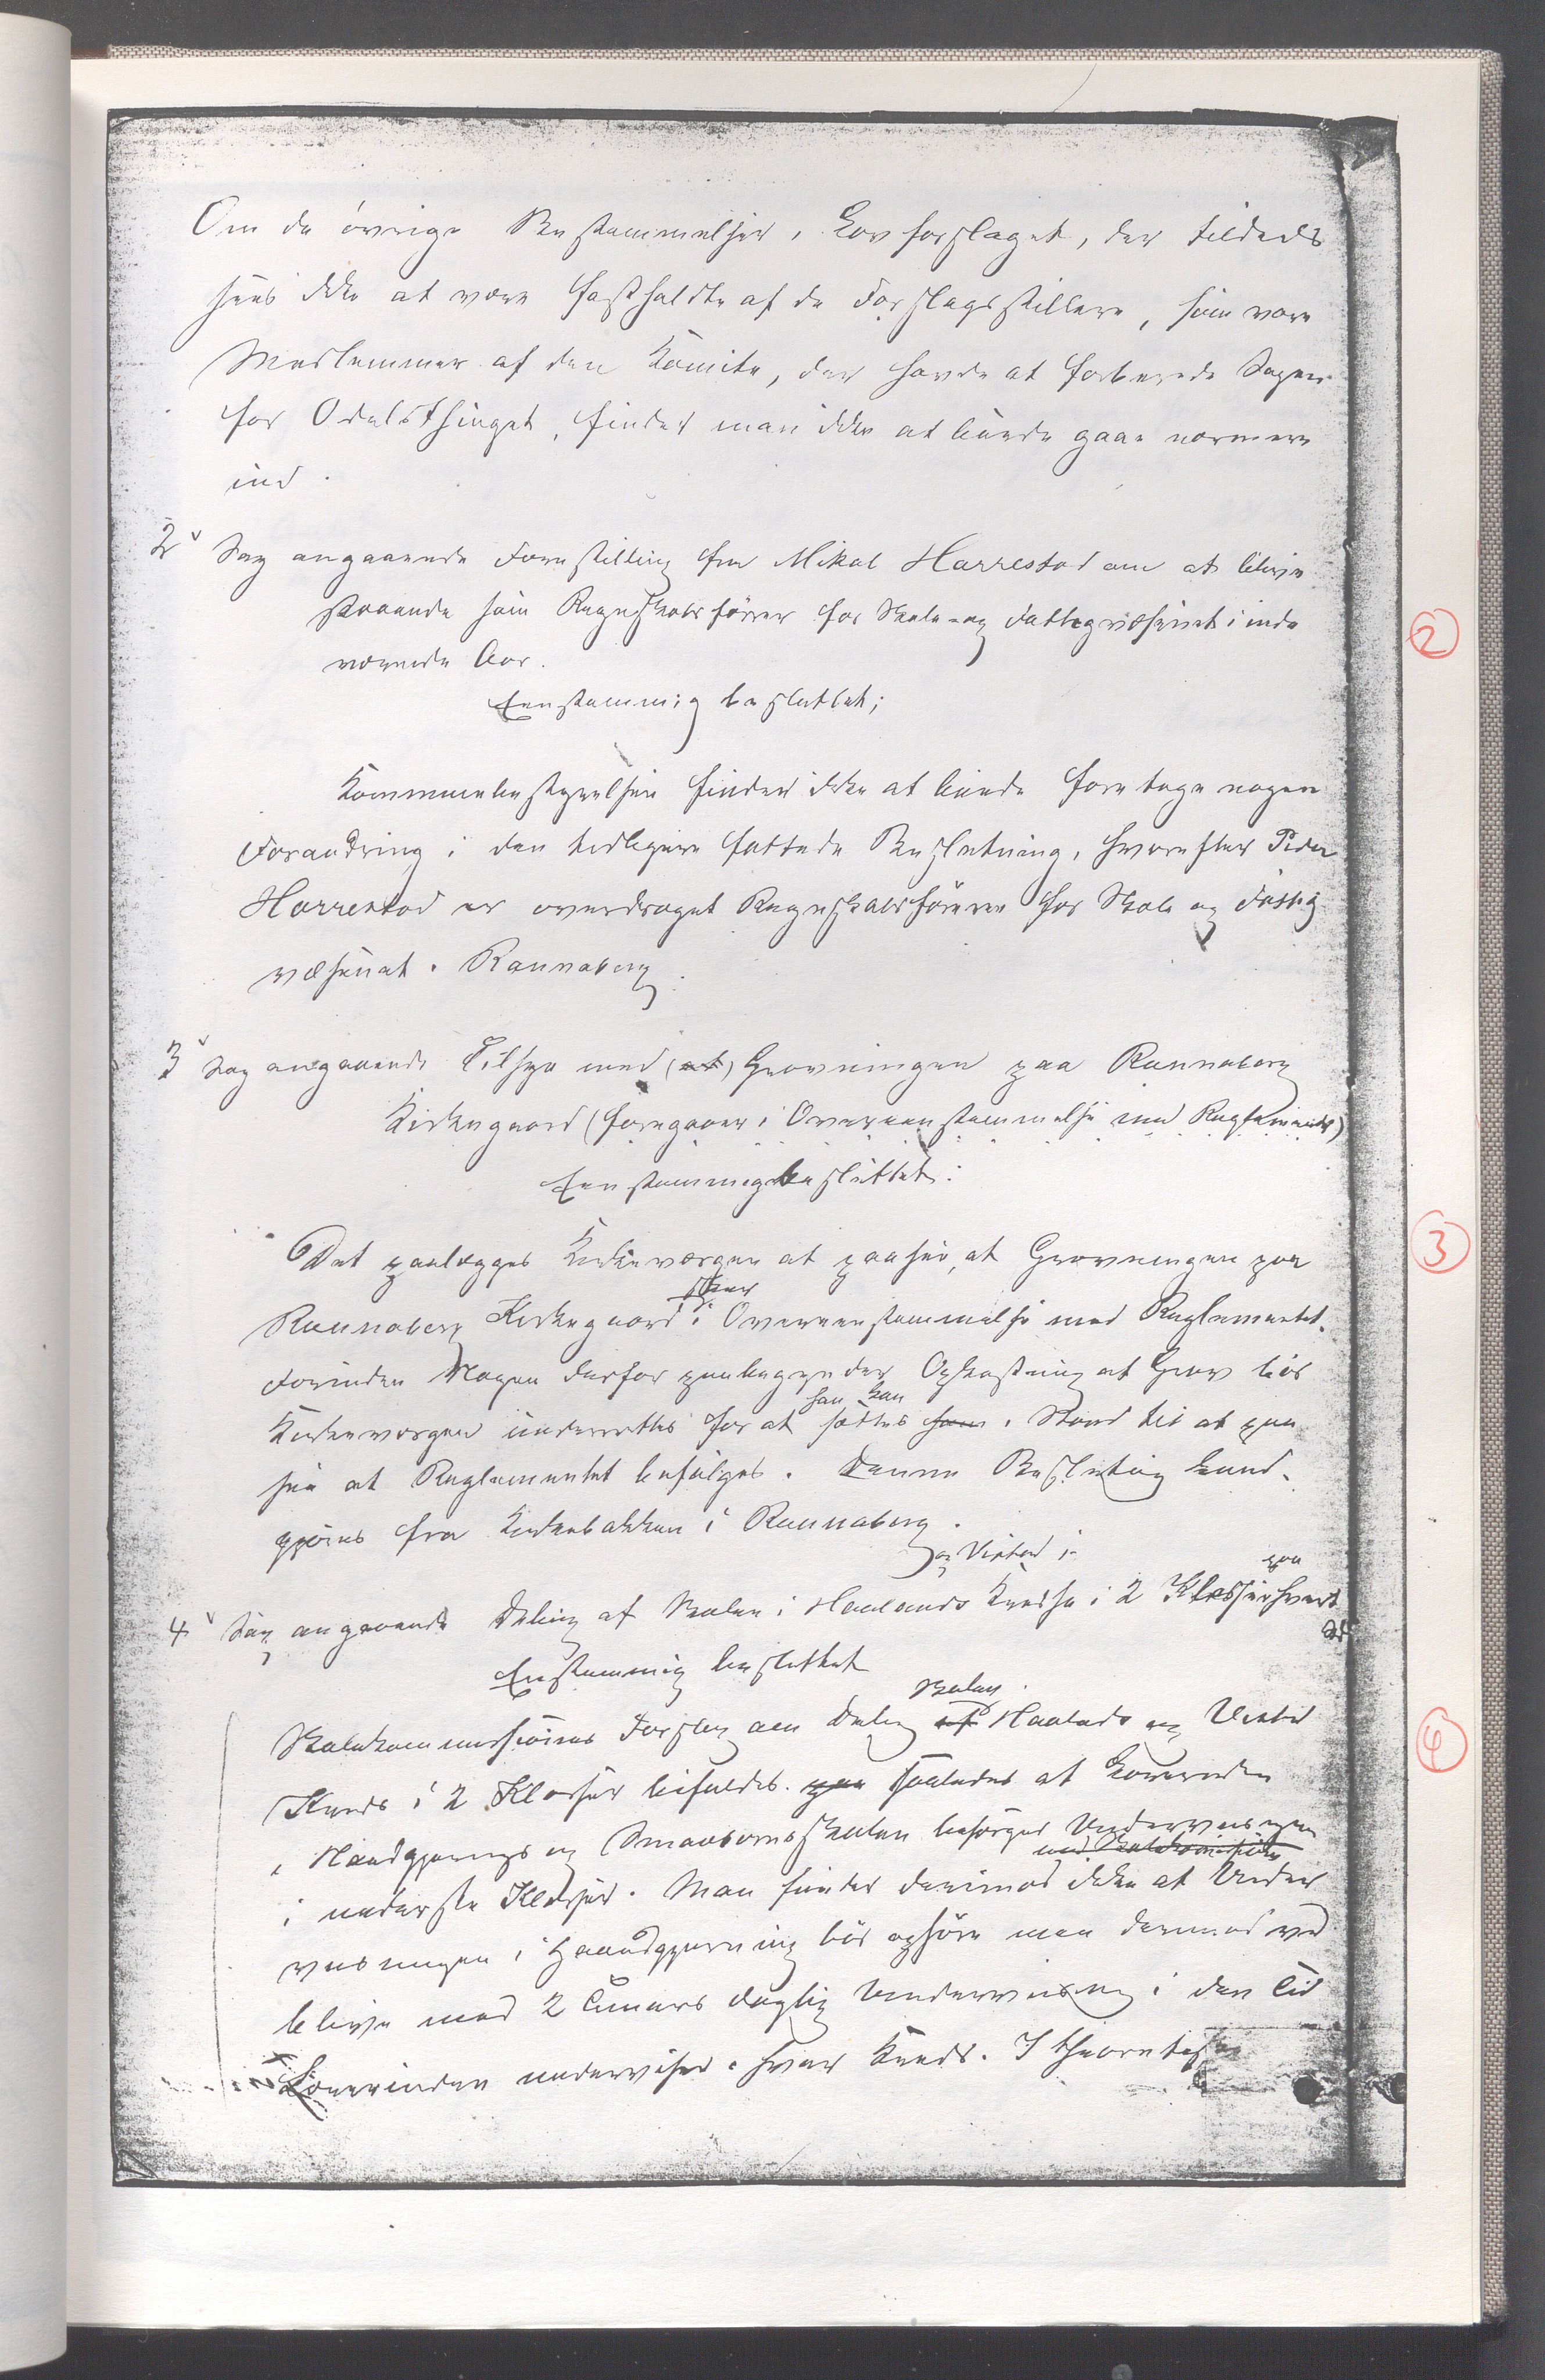 Om de øvrige Bestemmelser i Lovforslaget, der tildeels
sees ikke at være fastholdte af de Forslagsstillere, som vare
Medlemmer af den Komite, der havde at forberede Sagen
for Odelsthinget, finder man ikke at burde gaae nærmere
ind.
2 Sag angaaende Forestilling fra Mikal Harrestad om at blive
staaende som Regnskabsfører for Skole- og Fattigvæsenet i inde
værende Aar.
Eenstemmig besluttet;
Kommunebestyrelsen finder ikke at burde foretage nogen
Forandring i den tidligere fattede Beslutning, hvorefter Peder
Harrestad er overdraget Regnskabsførerei for Skole og Fattig
væsenet i Rannaberg.
3 Sag angaaende Tilsyn med (at) Gravningen paa Rannaberg
Kirkegaard (foregaaer i Overeenstemmelse med Reglementet)
Eenstemmig besluttet:
Det paalægges Kirkeværgen at paasee, at Gravningen paa
skeer
Rannaberg Kirkegaard i Overeenstemmelse med Reglementet.
Forinden Nogen derfor paabegynder Opkastning af Grav bør
han kan
Kirkeværgen underrettes for at sættes ham i Stand til at paa
see at Reglementet befølges. Denne Beslutning kund-
gjøres fra Kirkebakken i Rannaberg.
og Vistad i
paa
4 Sag angaaende Deling af Skolen i Haalands Kredse i 2 Klasser hvert
Sd
Enstemmig besluttet
Skolen
Skolekommissionens Forslag om Deling af Haalands og Vistad
Kreds i 2 Klasser bifaldes. paa saaledes at Lærerinden
i Haandgjernings og Smaabørnsskolen besørger Undervisningen
med Skolekommissionen
i nederste Klasse. Man finder derimod ikke at Under
visningen i Haandgjerning bør ophøre men dermed ved
blive med 2 Timers daglig Undervisning i den Tid
Lærerinden underviser i hver Kreds. I